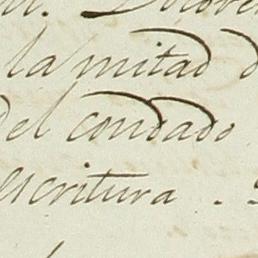 la mitad d
del condado
escritura .